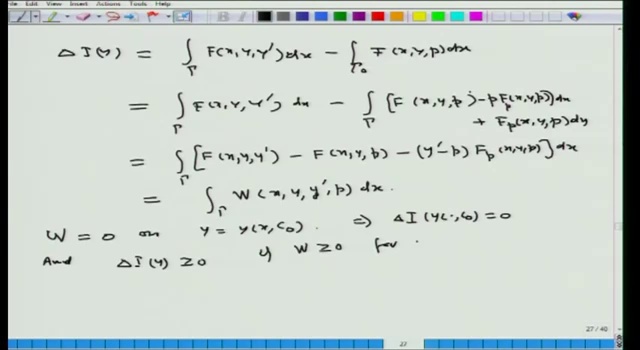 File Edit View Insert Actions Tools Help
Δ I(y) = ∫_Γ F(x,y,y')dx − ∫_Γ₀ F(x,y,p)dx
= ∫_Γ F(x,y,y') dx − ∫_Γ [F(x,y,p) − p F_p(x,y,p)]dx
+ F_p(x,y,p)dy
= ∫_Γ [F(x,y,y') − F(x,y,p) − (y'−p) F_p(x,y,p)]dx
= ∫_Γ W(x,y,y',p) dx.
W = 0 on y = y(x,c₀). ⇒ ΔI(y(·,c₀)) = 0
And ΔI(y) ≥ 0 if W ≥ 0 for
27 / 40
27